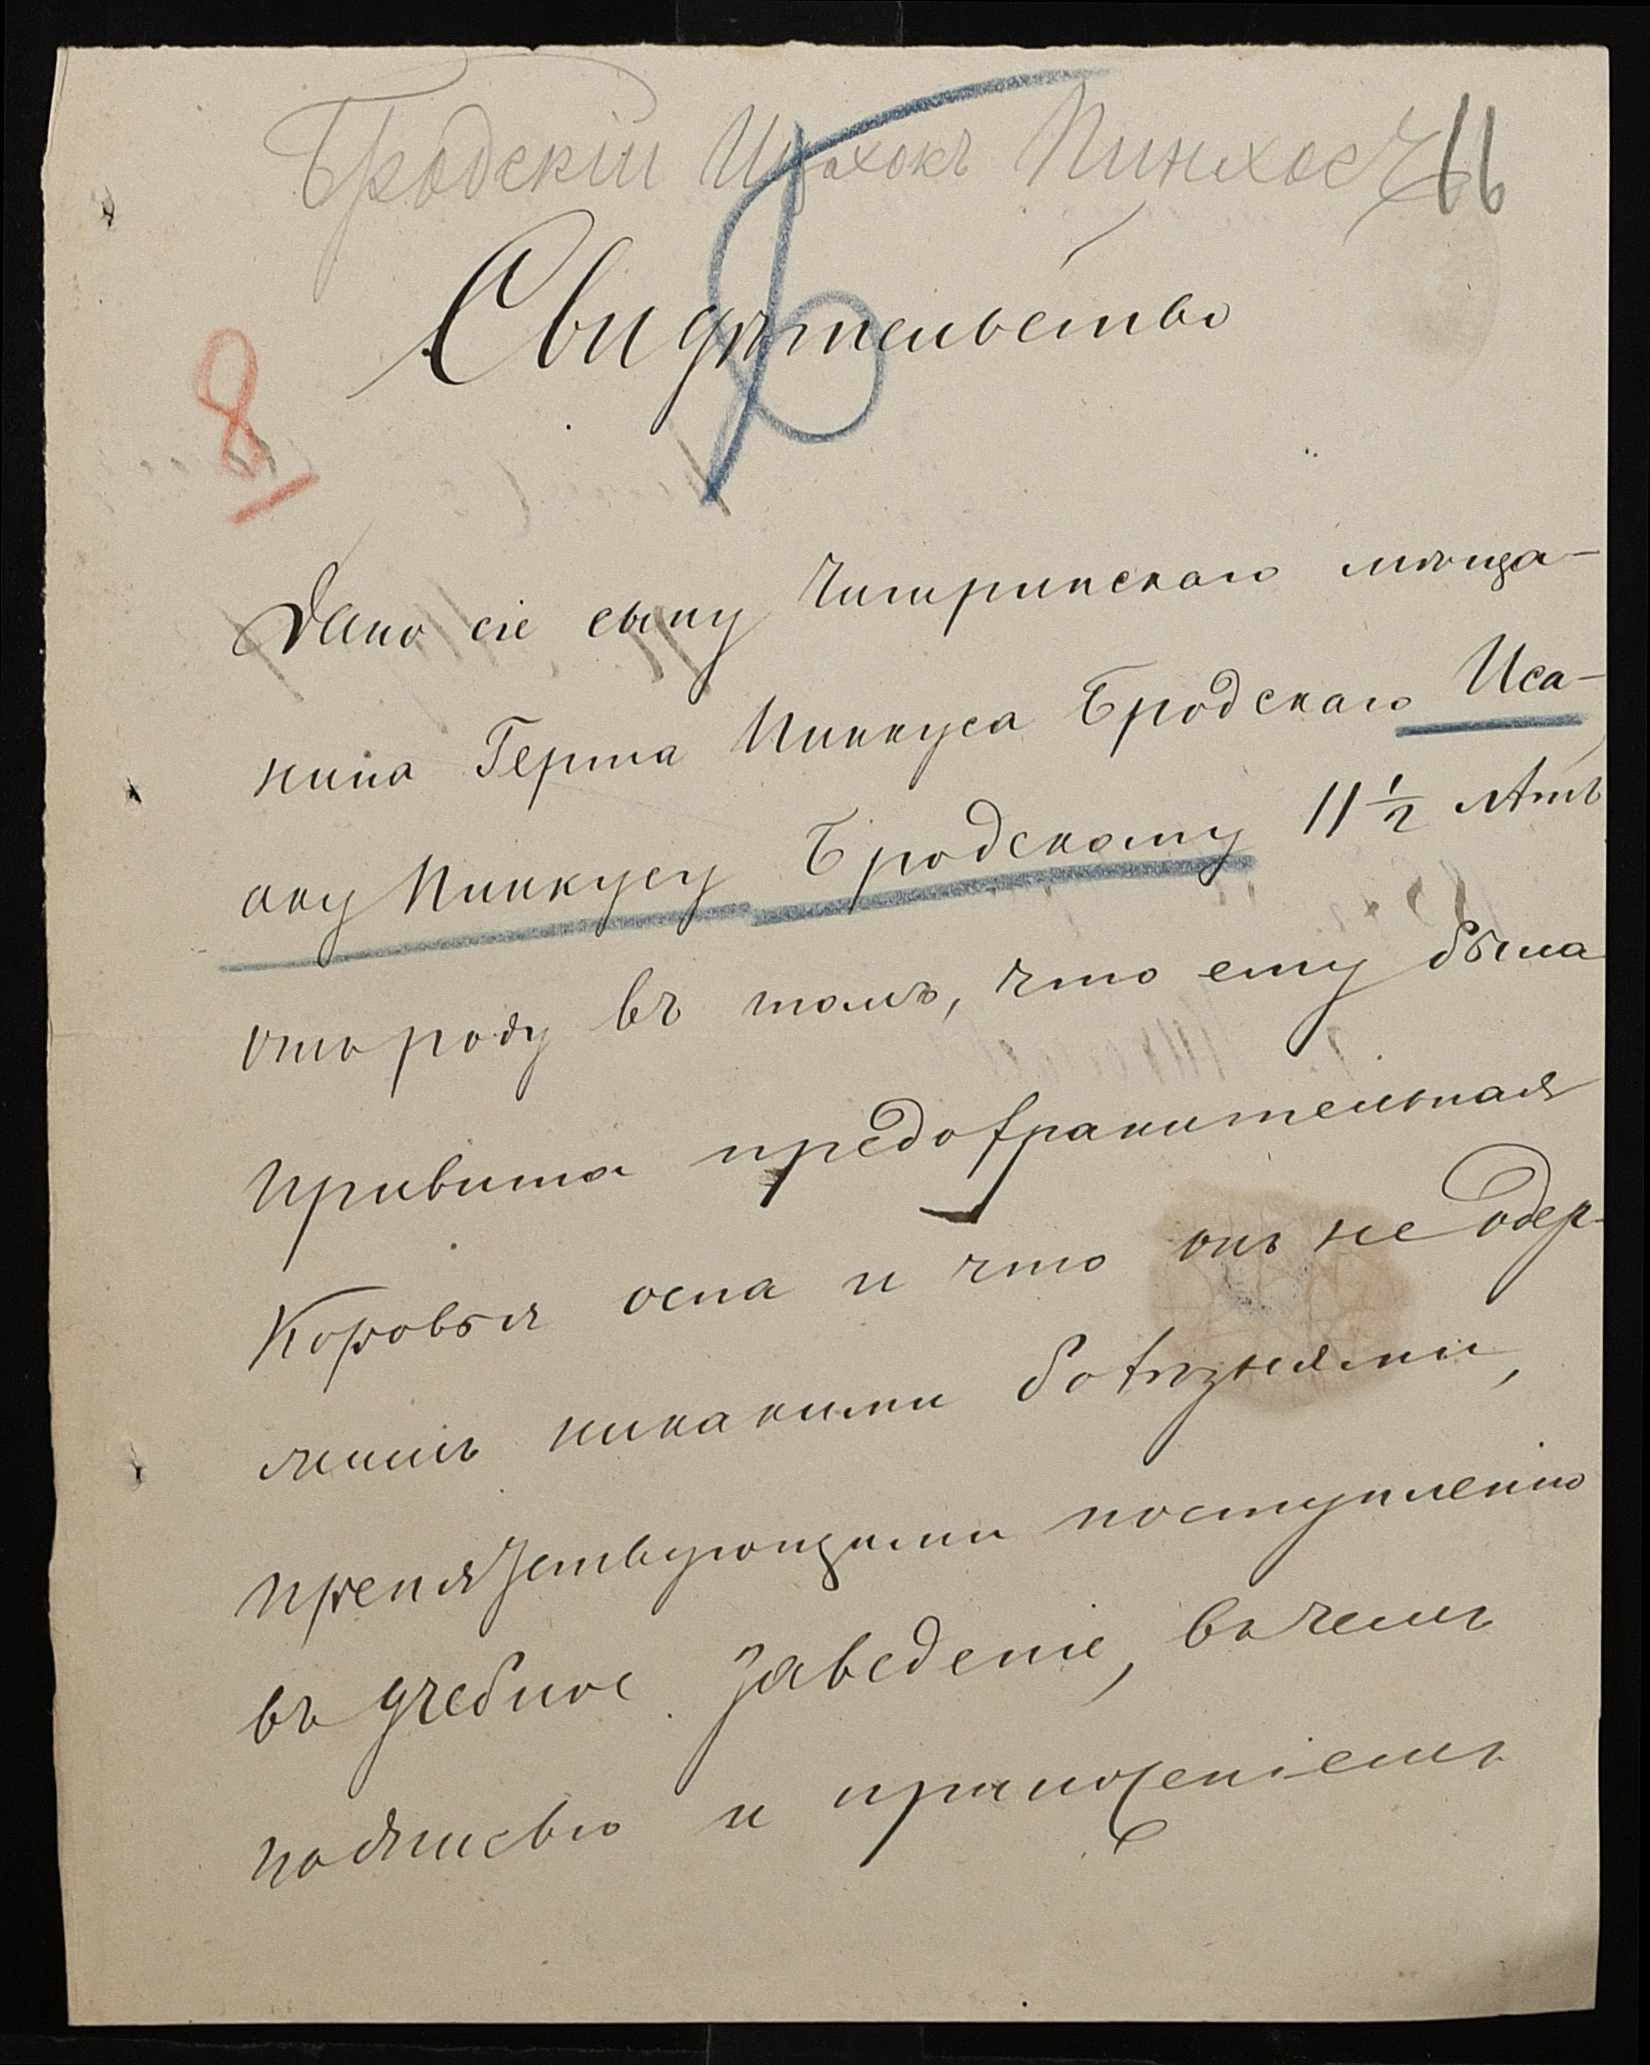 Бродскій Ицхокъ Пинхос 11
Б
Свидѣтельство
8
Дано сіе сыну Чигиринскаго мѣща-
нина Герша Пинкуса Бродскаго Иса-
аку Пинкусу Бродскому 11 1/2 лѣтъ
отъ роду въ томъ, что ему была
привита предохранительная
коровья оспа и что онъ не одер-
жимъ никакими болѣзнями,
препятствующими поступленію
въ учебное заведеніе, въ чемъ
подписью и приложеніемъ